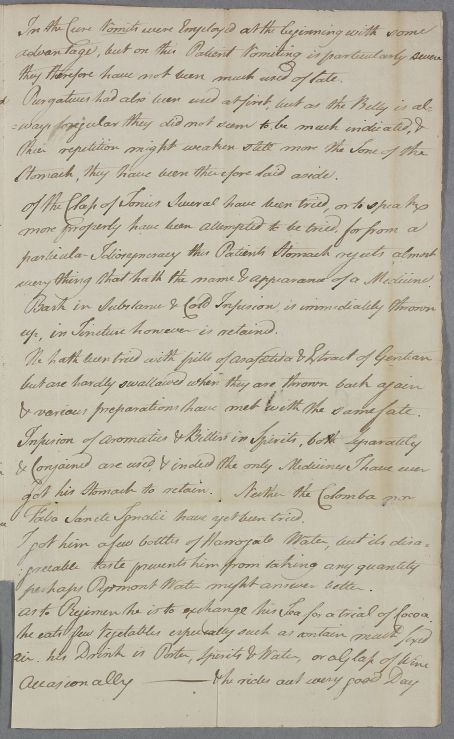 In the Cure Vomits were Employ'd at the beginning with some
advantage, but on this Patient Vomiting is particularly severe
they therefore have not been much used of late.
Purgatives had also been used at first, but as the Belly is al-
=ways regular they did not seem to be much indicated, &
their repetition might weaken still more the Tone of the
Stomach, they have been therefore laid aside.
Of the Class of Tonics Several have been tried, or to speak
more properly have been attempted to be tried, for from a
particular Idiosyncracy this Patients Stomach rejects almost
every thing that hath the name & appearance of a Medicine.
Bark in Substance & Cold Infusion is immediately thrown
up, in Tincture however is retained.
He hath been tried with pills of asafœtida & Extract of Gentian
but are hardly swallowed when they are thrown back again
& various preparations have met with the same fate.
Infusion of aromatics & Bitters in Spirits, both separately
& Conjoined are used, & indeed the only Medicines I have ever
got his Stomach to retain. Neither the Colomba nor
Faba Sancti Ignatii have yet been tried.
I got him a few bottles of Harrogate Water, but its disa-
=greeable taste prevents him from taking any quantity
perhaps Pyrmont Water might answer better.
as to Regimen he is to exchange his Tea for a trial of Cocoa
he eats few Vegetables especially such as contain much fixed
air. his Drink is Porter, Spirits & Water, or a Glass of Wine
Occasionally — & he rides out every good Day